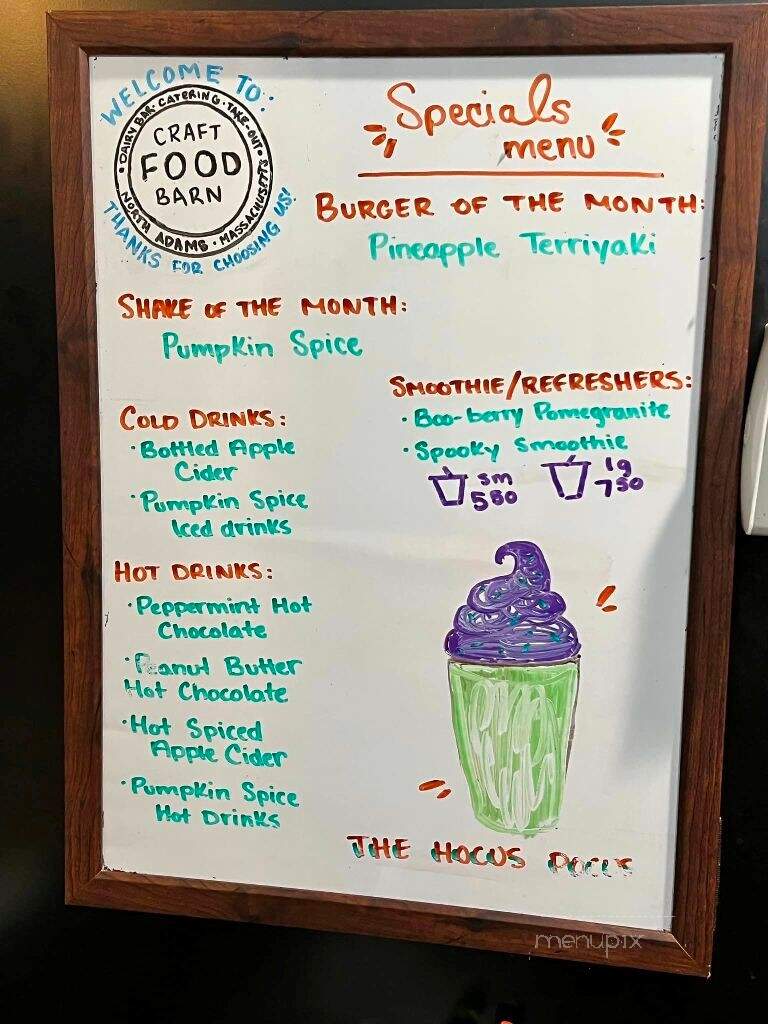 WELCOME TO:
DAIRY BAR · CATERING · TAKE-OUT ·
CRAFT
FOOD
BARN
NORTH ADAMS · MASSACHUSETTS
THANKS FOR CHOOSING US!
Specials
menu
BURGER OF THE MONTH:
Pineapple Terriyaki
SHAKE OF THE MONTH:
Pumpkin Spice
COLD DRINKS:
· Bottled Apple
Cider
· Pumpkin Spice
Iced drinks
HOT DRINKS:
· Peppermint Hot
Chocolate
· Peanut Butter
Hot Chocolate
· Hot Spiced
Apple Cider
· Pumpkin Spice
Hot Drinks
SMOOTHIE/REFRESHERS:
· Boo-berry Pomegranite
· Spooky Smoothie
sm lg
550 750
THE HOCUS POCUS
menupix